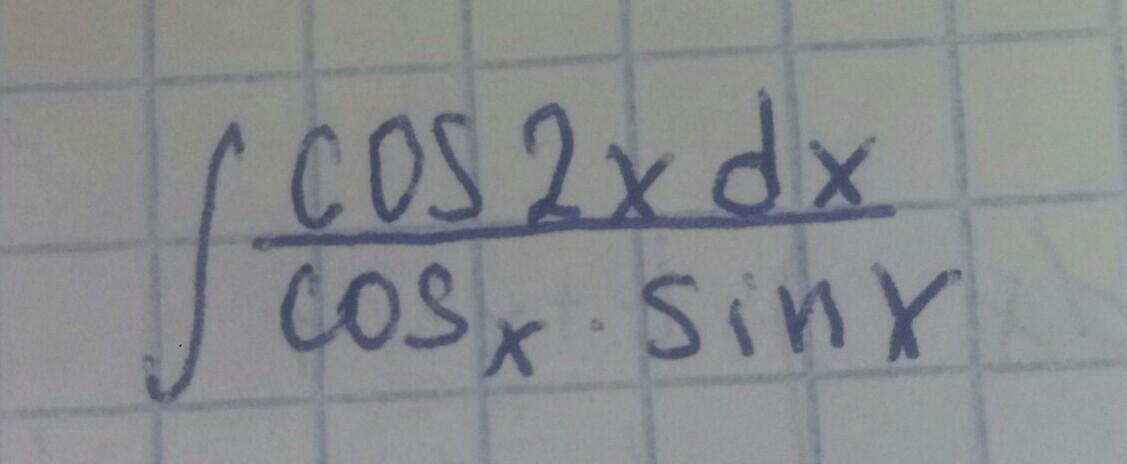 ∫ cos 2x dx
cosx · sin x